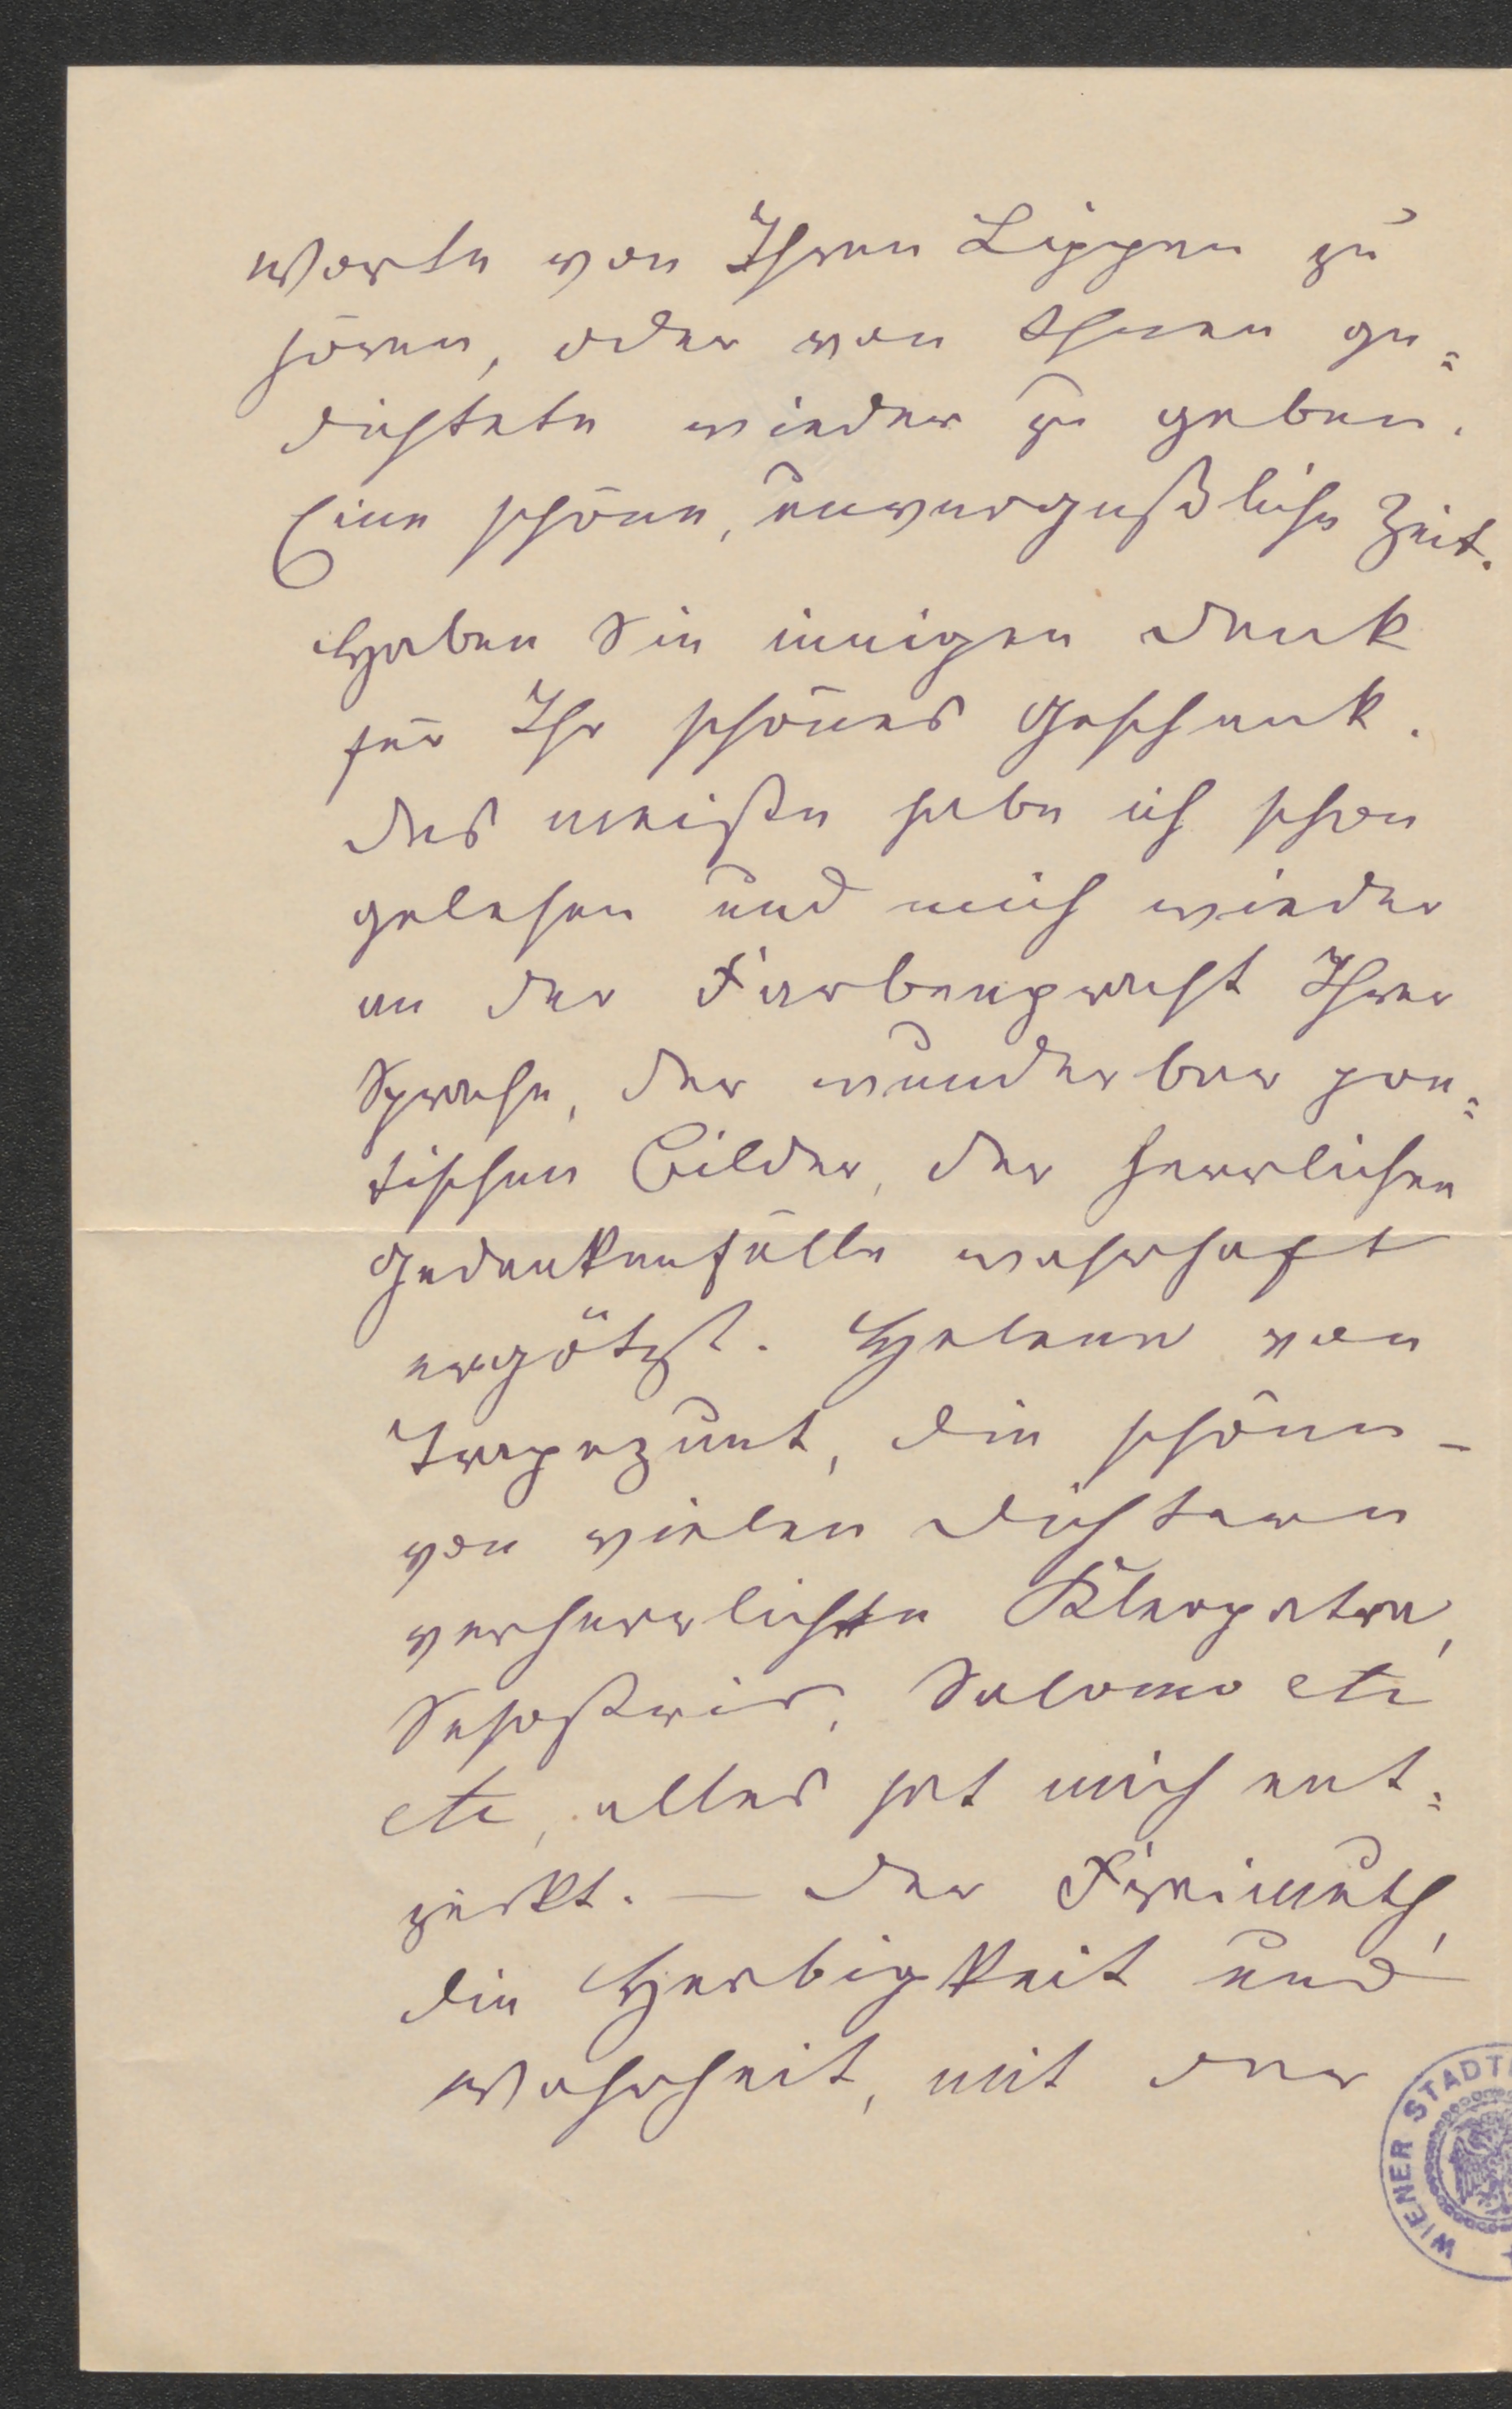 Worte von Ihren Lippen zu
hören, oder von Ihnen ge=
dichtete wieder zu geben.
Eine schöne, unvergeßliche Zeit.
Haben Sie innigen Dank
für Ihr schönes Geschenk.
Das meiste habe ich schon
gelesen und mich wieder
an der Farbenpracht Ihrer
Sprache, der wunderbar poe=
tischen Bilder, der herrlichen
Gedankenfülle wahrhaft
ergötzt. Helene von
Trapezunt, die schöne –
von vielen Dichtern
verherrlichte Kleopatra,
Sesostris, Salomo etc
etc, alles hat mich ent=
zückt. — Der Freimuth,
die Herbigkeit und
Wahrheit, mit der
WIENER STADT